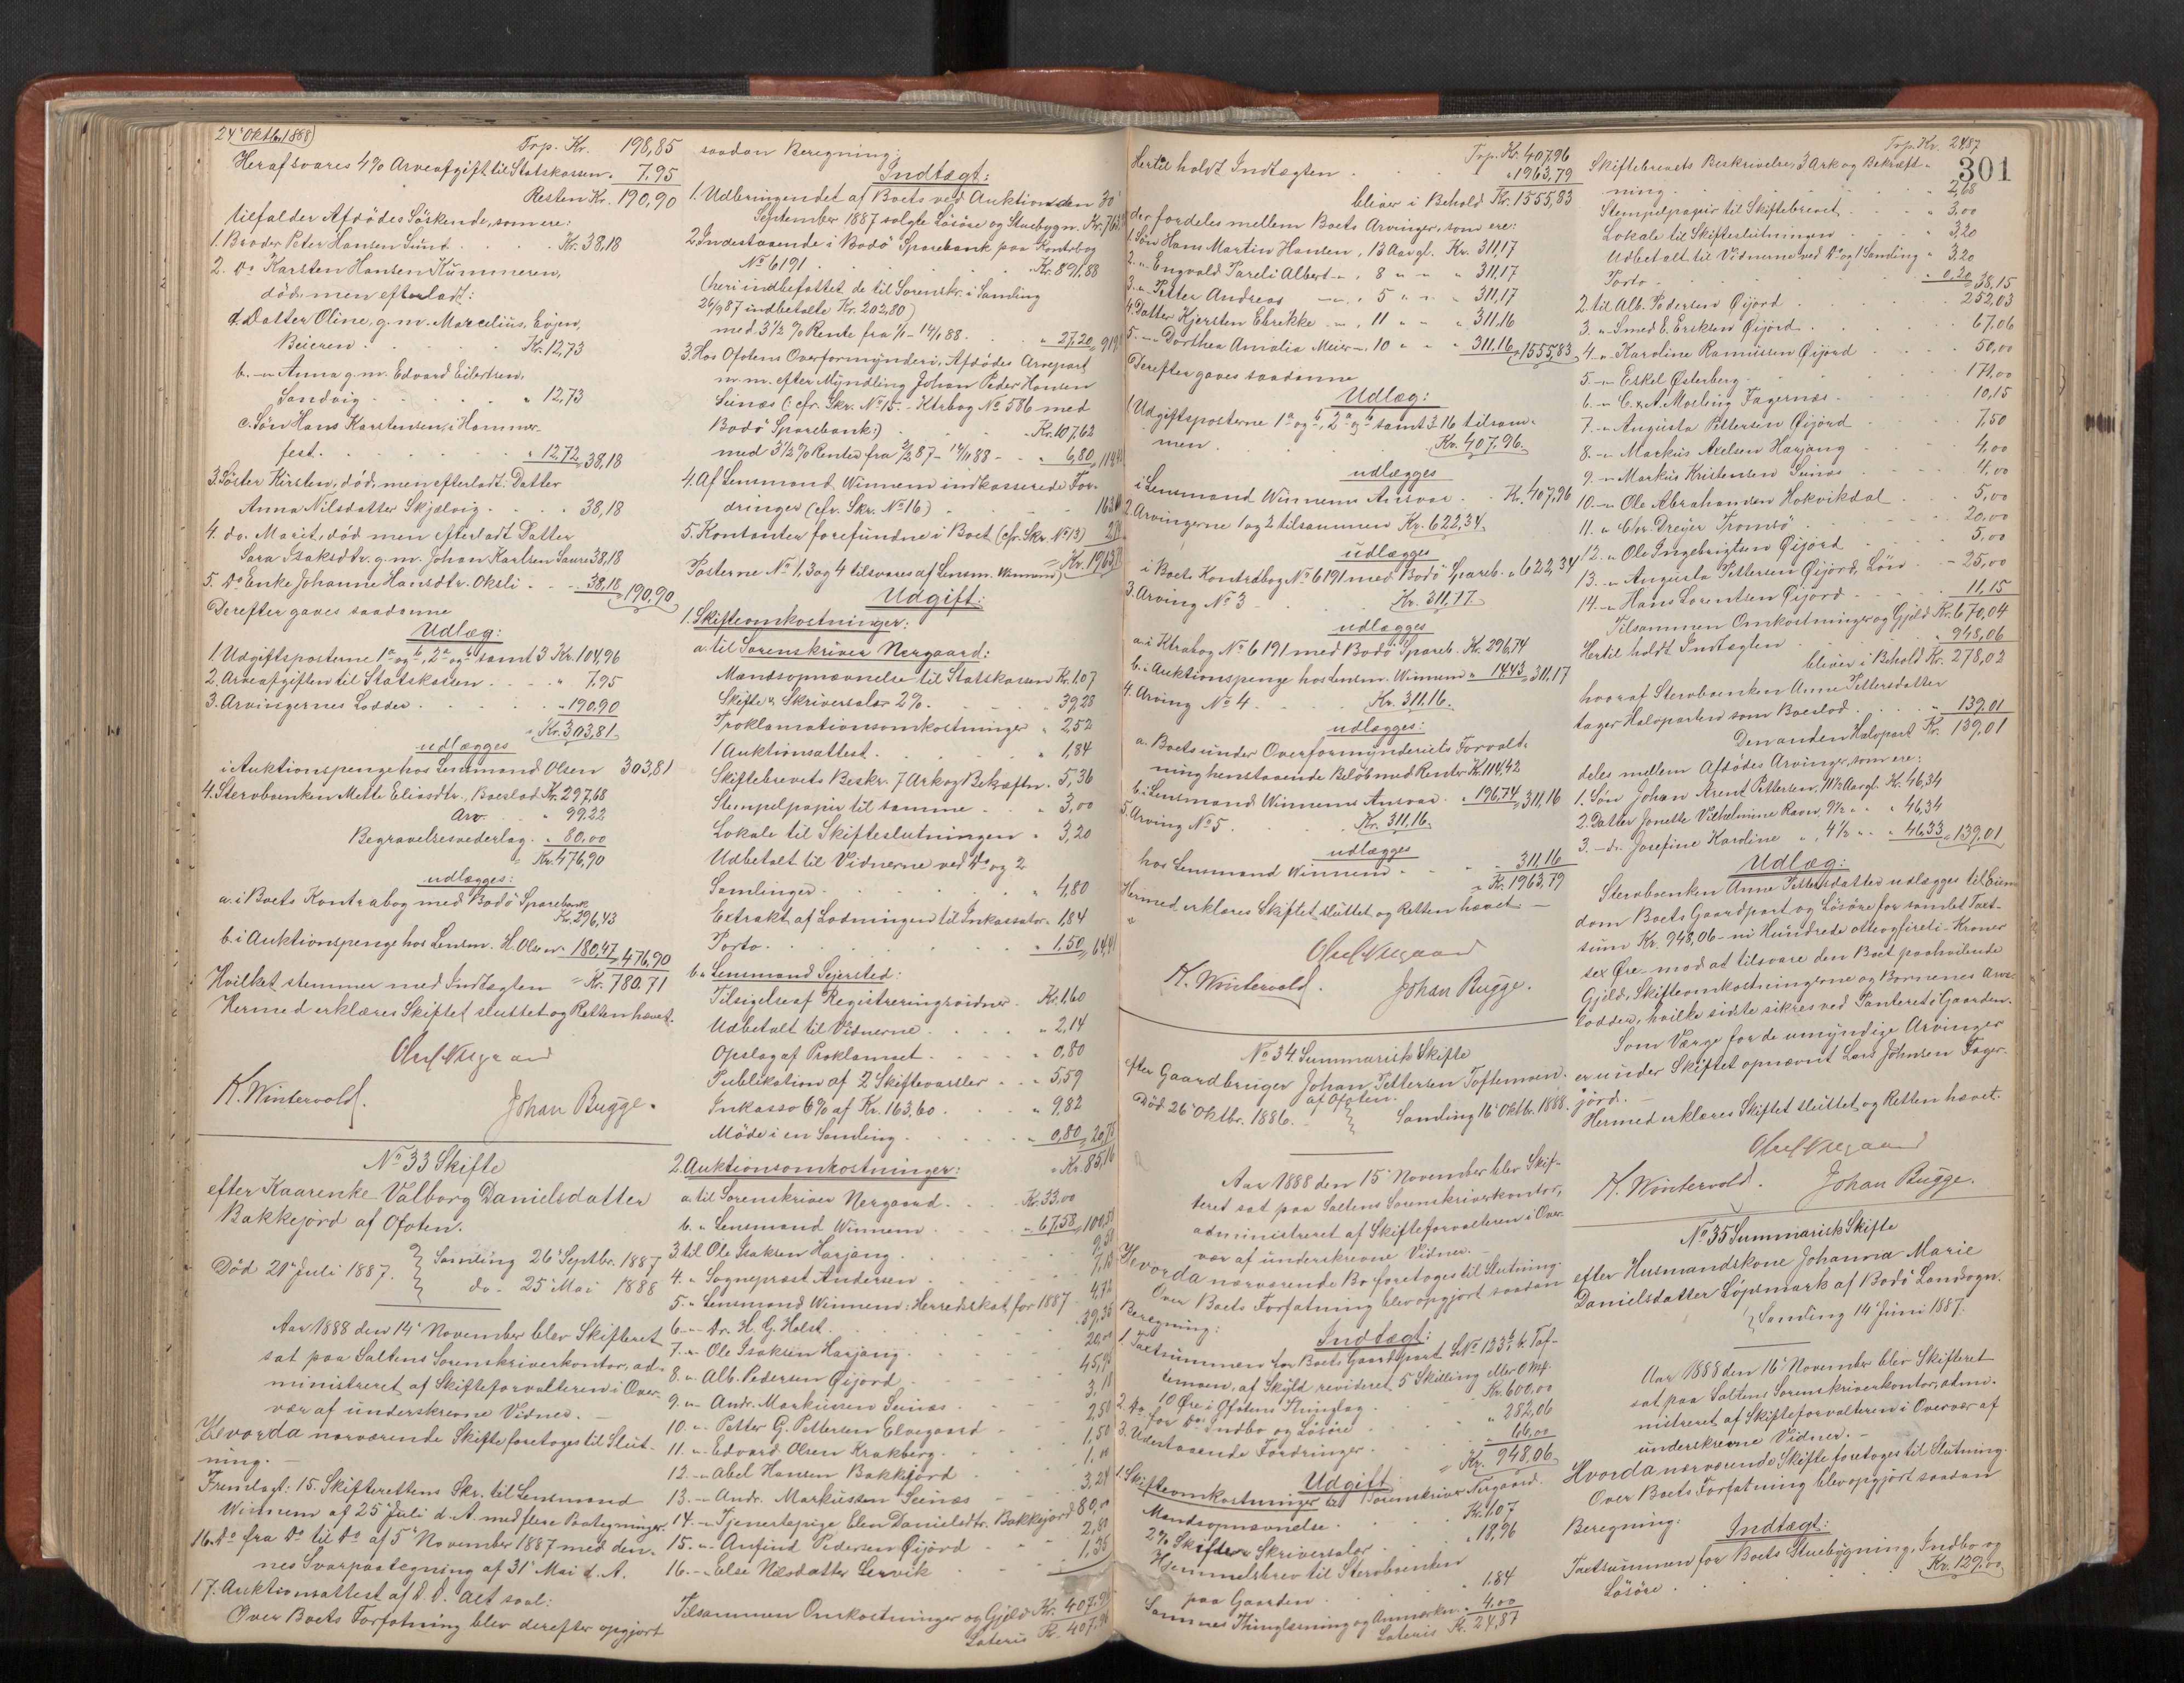 24' Oktbr. 1888)
Trp. Kr. 198,85
Heraf svares 4% Arveafgift til Statskassen " 7,95
Resten Kr. 190,90
tilfalder Afdødes Söskende, som ere:
1. Broder Peter Hansen Sund . . . Kr. 38,18
2. do Karsten Hansen Kummeren,
död, men efterladt:
a. Datter Oline, g. m. Marcelius, Evjen,
Beieren . . . Kr. 12,73
b. -"- Anna g. m. Edvard Eilertsen,
Sandvig . . . " 12,73
c. Sön Hans Karstensen, i Hammer-
fest. . . . " 12,72 " 38,18
3. Söster Kirsten, död, men efterladt: Datter
Anna Nilsdatter Skjelvig . . . " 38,18
4. do. Marit, död men efterladt Datter
Sara Isaksdtr. g. m. Johan Karlsen Saure 38,18
5. do Enke Johanne Hansdtr. Oksli . . - 38,18 " 190,90
Derefter gaves saadanne
Udlæg:
1. Udgiftsposterne 1a og b, 2a og b samt 3 Kr. 104,96
2. Arveafgiften til Statskassen . . . " 7,95
3. Arvingernes Lodder . . . " 190,90
Kr. 303,81
udlægges
i Auktionspenge hos Lensmand Olsen 303,81
4. Stervboenken Mette Eliasdtr., Boeslod Kr. 297,68
Arv. " 99,22
Begravelsesvederlag . " 80,00
Kr. 476,90
udlægges:
a. i Boets Kontrabog med Bodö Sparebank
Kr. 296,43
b. i Auktionspenge hos Lensm. H. Olsen " 180,47 " 476,90
Hvilket stemmer med Indtægten = Kr. 780,71
Hermed erklæres Skiftet sluttet og Retten hævet.
K. Wintervold. Johan Bugge.
No 33 Skifte
efter Kaarenke Valborg Danielsdatter
Bakkejord af Ofoten.
Död 21' Juli 1887. Samling 26' Septbr. 1887
do - 25' Mai 1888
Aar 1888 den 14' November blev Skifteret
sat paa Saltens Sorenskriverkontor, ad-
ministreret af Skifteforvalteren i Over-
vær af underskrevne Vidner. -
Hvorda nærværende Skifte foretoges til Slut-
ning. -
Fremlagt: 15. Skifterettens Skr. til Lensmand
Winnem af 25' Juli d. A. med flere Paategninger.
16. do fra do til do af 5' November 1887 med den-
nes Svarpaategning af 31' Mai d. A.
17. Auktionsattest af D. D. Alt saal:
Over Boets Forfatning blev derefter opgjort
saadan Beregning:
Indtægt:
1. Udbringendet af Boets ved Auktion den 30'
September 1887 solgte Lösöre og Stuebygn. Kr. 763
2. Indestaaende i Bodö Sparebank paa Kontrabog
No 6191 . . . Kr. 891,88
(heri indbefattet de til Sorenskr. i Samling
26/9 87 indbetalte Kr. 202,80)
med 3 1/2 % Rente fra 1/1 - 14/11 88 . . " 27,20 "
3. Hos Ofotens Overformynderi, Afdødes Arvepart
m. m. efter Myndling Johan Peder Hansen
Seinæs (: cfr. Skr. No 15 - Ktrbog No 586 med
Bodö Sparebank:) . . . Kr. 107,62
med 3 1/2 % Renter fra 2/2 87 - 14/11 88 - " 6,80 "
4. Af Lensmand Winnem indkasserede For-
dringer (cfr. Skr. No 16) . . .
5. Kontanter forefundne i Boet (cfr. Skr. No 13)
= Kr. 1963,79
Posterne No 1, 3 og 4 tilsvares af Lensm. Winnem)
Udgift:
1. Skifteomkostninger:
a. til Sorenskriver Nergaard:
Mandsopnævnelse til Statskassen Kr. 1,07
Skifte & Skriversalær 2% . . " 39,28
Proklamationsomkostninger " 2,52
1 Auktionsattest . . . " 1,84
Skiftebrevets Beskr. 7 Ark og Bekræftn. 5,36
Stempelpapir til samme . . " 3,00
Lokale til Skifteslutningen " 3,20
Udbetalt til Vidnerne ved do og 2
Samlinger . . . " 4,80
Extrakt af Lodningen til Inkassator . 1,84
Porto . . . " 1,50 " 64,41
b. " Lensmand Sejersted:
Tilsigelse af Registreringsvidner . Kr. 1,60
Udbetalt til Vidnerne . . . " 2,14
Opslag af Proklamaet . . . " 0,80
Publikation af 2 Skiftevarsler . . " 5,59
Inkasso 6% af Kr. 163,60 . . . " 9,82
Möde i en Samling . . . " 0,80 " 20,75
= Kr. 85,16
2. Auktionsomkostninger:
a. til Sorenskriver Nergaard . . Kr. 33,00
b. " Lensmand Winnem . . . " 67,58 " 100,58
3. til Ole Isaksen Harjang . . .
4. " Sognepræst Andersen . . .
5. " Lensmand Winnem: Herredskat for 1887 - 4,72
6. -"- Dr. H. G. Holst . . . 39,35
7. -"- Ole Isaksen Harjang . . . 20,00
8. " Alb. Pedersen Øijord . . .
9. -"- Andr. Markussen Seinæs . . .
10. -"- Petter G. Pettersen Elvegaard - 2,50
11. -"- Edvard Olsen Krakberg . . . 1,50
12. -"- Abel Hansen Bakkejord . . .
13. -"- Andr. Markussen Seinæs . . . 3,24
14. -"- Tjenestepige Elen Danielsdtr. Bakkejord 80,00
15. -"- Anfind Pedersen Øijord . . . 2,80
16. -"- Else Nilsdatter Lervik . . . 1,35
Tilsammen Omkostninger og Gjeld Kr. 407,96
Lateris Kr. 407,96
301
Trp. Kr. 407,96
Hertil holdt Indtægten . . . " 1963,79
bliver i Behold Kr. 1555,83
der fordeles mellem Boets Arvinger, som ere:
1. Sön Hans Martin Hansen, 13 Aar gl. Kr. 311,17
2. " Engvald Pareli Albert -"-, 8 " - " 311,17
3. " Petter Andreas -"-, 5 " - " 311,17
4. Datter Kjersten Elrikke -"-, 11 " - " 311,16
5. -"- Dorthea Amalia Meier -"-, 10 " - " 311,16 " 1555,83
Derefter gaves saadanne
Udlæg:
1. Udgiftsposterne 1a og b, 2a og b samt 3-16 tilsam-
men . . . Kr. 407,96.
udlægges
i Lensmand Winnems Ansvar . . Kr. 407,96
2. Arvingerne 1 og 2 tilsammen Kr. 622,34.
udlægges
i Boets Kontrabog No 6191 med Bodö Spareb. " 622,34
3. Arving No 3 . . . Kr. 311,17.
udlægges
a. i Ktrabog No 6191 med Bodö Spareb. Kr. 296,74
b. i Auktionspenge hos Lensm. Winnem " 14,43 " 311,17
4. Arving No 4 . . . Kr. 311,16.
udlægges:
a. Boets under Overformynderiets Forvalt-
ning henstaaende Beløb med Renter Kr. 114,42
b. i Lensmand Winnems Ansvar . " 196,74 " 311,16
5. Arving No 5 . . . Kr. 311,16.
udlægges
hos Lensmand Winnem . . . " 311,16
= Kr. 1963,79
Hermed erklæres Skiftet sluttet og Retten hævet -
K. Wintervold. Johan Bugge.
No 34 Summarisk Skifte
efter Gaardbruger Johan Pettersen Toftemoen
af Ofoten.
Död 26' Oktbr. 1886. Samling 16' Oktbr. 1888.
Aar 1888 den 15' November blev Skif-
teret sat paa Saltens Sorenskriverkontor,
administreret af Skifteforvalteren i Over-
vær af underskrevne Vidner. -
Hvorda nærværende Bo foretoges til Slutning.
Over Boets Forfatning blev opgjort saadan
Beregning:
Indtægt:
1. Taxtsummen for Boets Gaardpart LNo 123b, 6. Tof-
temoen, af Skyld revideret 5 Skilling eller 0 Mk.
10 Øre i Ofotens Thinglag . . . Kr. 600,00
2. do. for do Indbo og Lösöre . . . " 282,06
3. Udestaaende Fordringer . . . " 66,00
= Kr. 948,06
Udgift
1. Skifteomkostninger til Sorenskriver Nergaard.
Mandsopnævnelse . . . Kr. 1,07
2% Skifte & Skriversalær . . . " 18,96
Hjemmelsbrev til Stervboenken
paa Gaarden . . . " 1,84
Sammes Thinglæsning og Anmærkn. " 4,00
Lateris Kr. 24,87
Trp. Kr. 24,87
Skiftebrevets Beskrivelse, 3 Ark og Bekræft-
ning . . . " 2,68
Stempelpapir til Skiftebrevet . . . " 3,00
Lokale til Skifteslutningen . . . " 3,20
Udbetalt til Vidnerne ved do og 1 Samling " 3,20
Porto . . . " 0,20 " 38,15
2. til Alb. Pedersen Øijord . . . 252,03
3. " Smed E. Eriksen Øijord . . . 67,06
4. -"- Karoline Ramussen Øijord . . . 50,00
5. -"- Eskel Østerberg . . . 171,00
6. -"- C. & A. Mosling Fagernæs . . . 10,15
7. -"- Augusta Pettersen Øijord . . . 7,50
8. -"- Markus Axelsen Harjang . . . 4,00
9. -"- Markus Kristensen Seinæs . . . 4,00
10. -"- Ole Abrahamsen Hokvikdal . . . 5,00
11. " Chr. Dreyer Tromsö . . . 20,00
12. -"- Ole Ingebrigtsen Øijord . . . 5,00
13. -"- Augusta Pettersen Øijord, Lön . - 25,00
14. -"- Hans Lorentsen Øijord . . . 11,15
Tilsammen Omkostninger og Gjeld Kr. 670,04
Hertil holdt Indtægten . . . " 948,06
bliver i Behold Kr. 278,02
hvoraf Stervboenken Anne Pettersdatter
tager Halvparten som Boeslod . . . " 139,01
Den anden Halvpart Kr. 139,01
deles mellem Afdødes Arvinger, som ere:
1. Sön Johan Arent Pettersen, 11 1/2 Aar gl. Kr. 46,34
2. Datter Jonette Vilhelmine Ravn, 9 1/2 " " " 46,34
3. -do- Josefine Karoline ", 4 1/2 " " " 46,33 " 139,01
Udlæg:
Stervboenken Anne Pettersdatter udlægges til Eien-
dom Boets Gaardpart og Lösöre for samlet Taxt-
sum Kr. 948,06 - ni Hundrede otteogfireti - Kroner
sex Øre - mod at tilsvare den Boet paahvilende
Gjeld, Skifteomkostningerne og Børnenes Arve-
lodder, hvilke sidste sikres ved Panteret i Gaarden.
Som Værge for de umyndige Arvinger
er under Skiftet opnævnt Lars Johnsen Fager-
jord. -
Hermed erklæres Skiftet sluttet og Retten hævet.
K. Wintervold. Johan Bugge.
No 35 Summarisk Skifte
efter Husmandskone Johanna Marie
Danielsdatter Löpsmark af Bodö Landsogn.
Samling 14' Juni 1887.
Aar 1888 den 16' November blev Skifteret
sat paa Saltens Sorenskriverkontor, admi-
nistreret af Skifteforvalteren i Overvær af
underskrevne Vidner. -
Hvorda nærværende Skifte foretoges til Slutning.
Over Boets Forfatning blev opgjort saadan
Beregning:
Indtægt:
Taxtsummen for Boets Stuebygning, Indbo og
Lösöre . . . Kr. 129,00